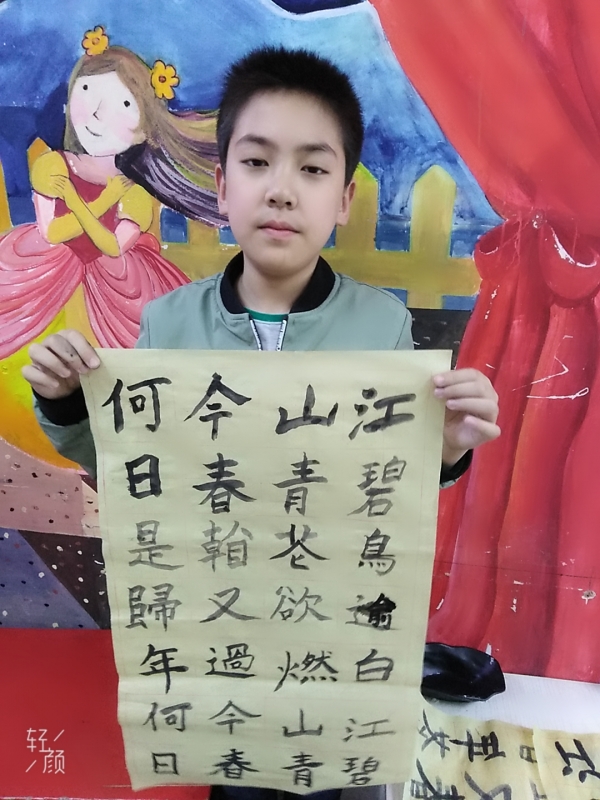 江碧鳥逾白江碧
山青花欲燃山青
今春又過今春
何日是歸年何日
轻颜